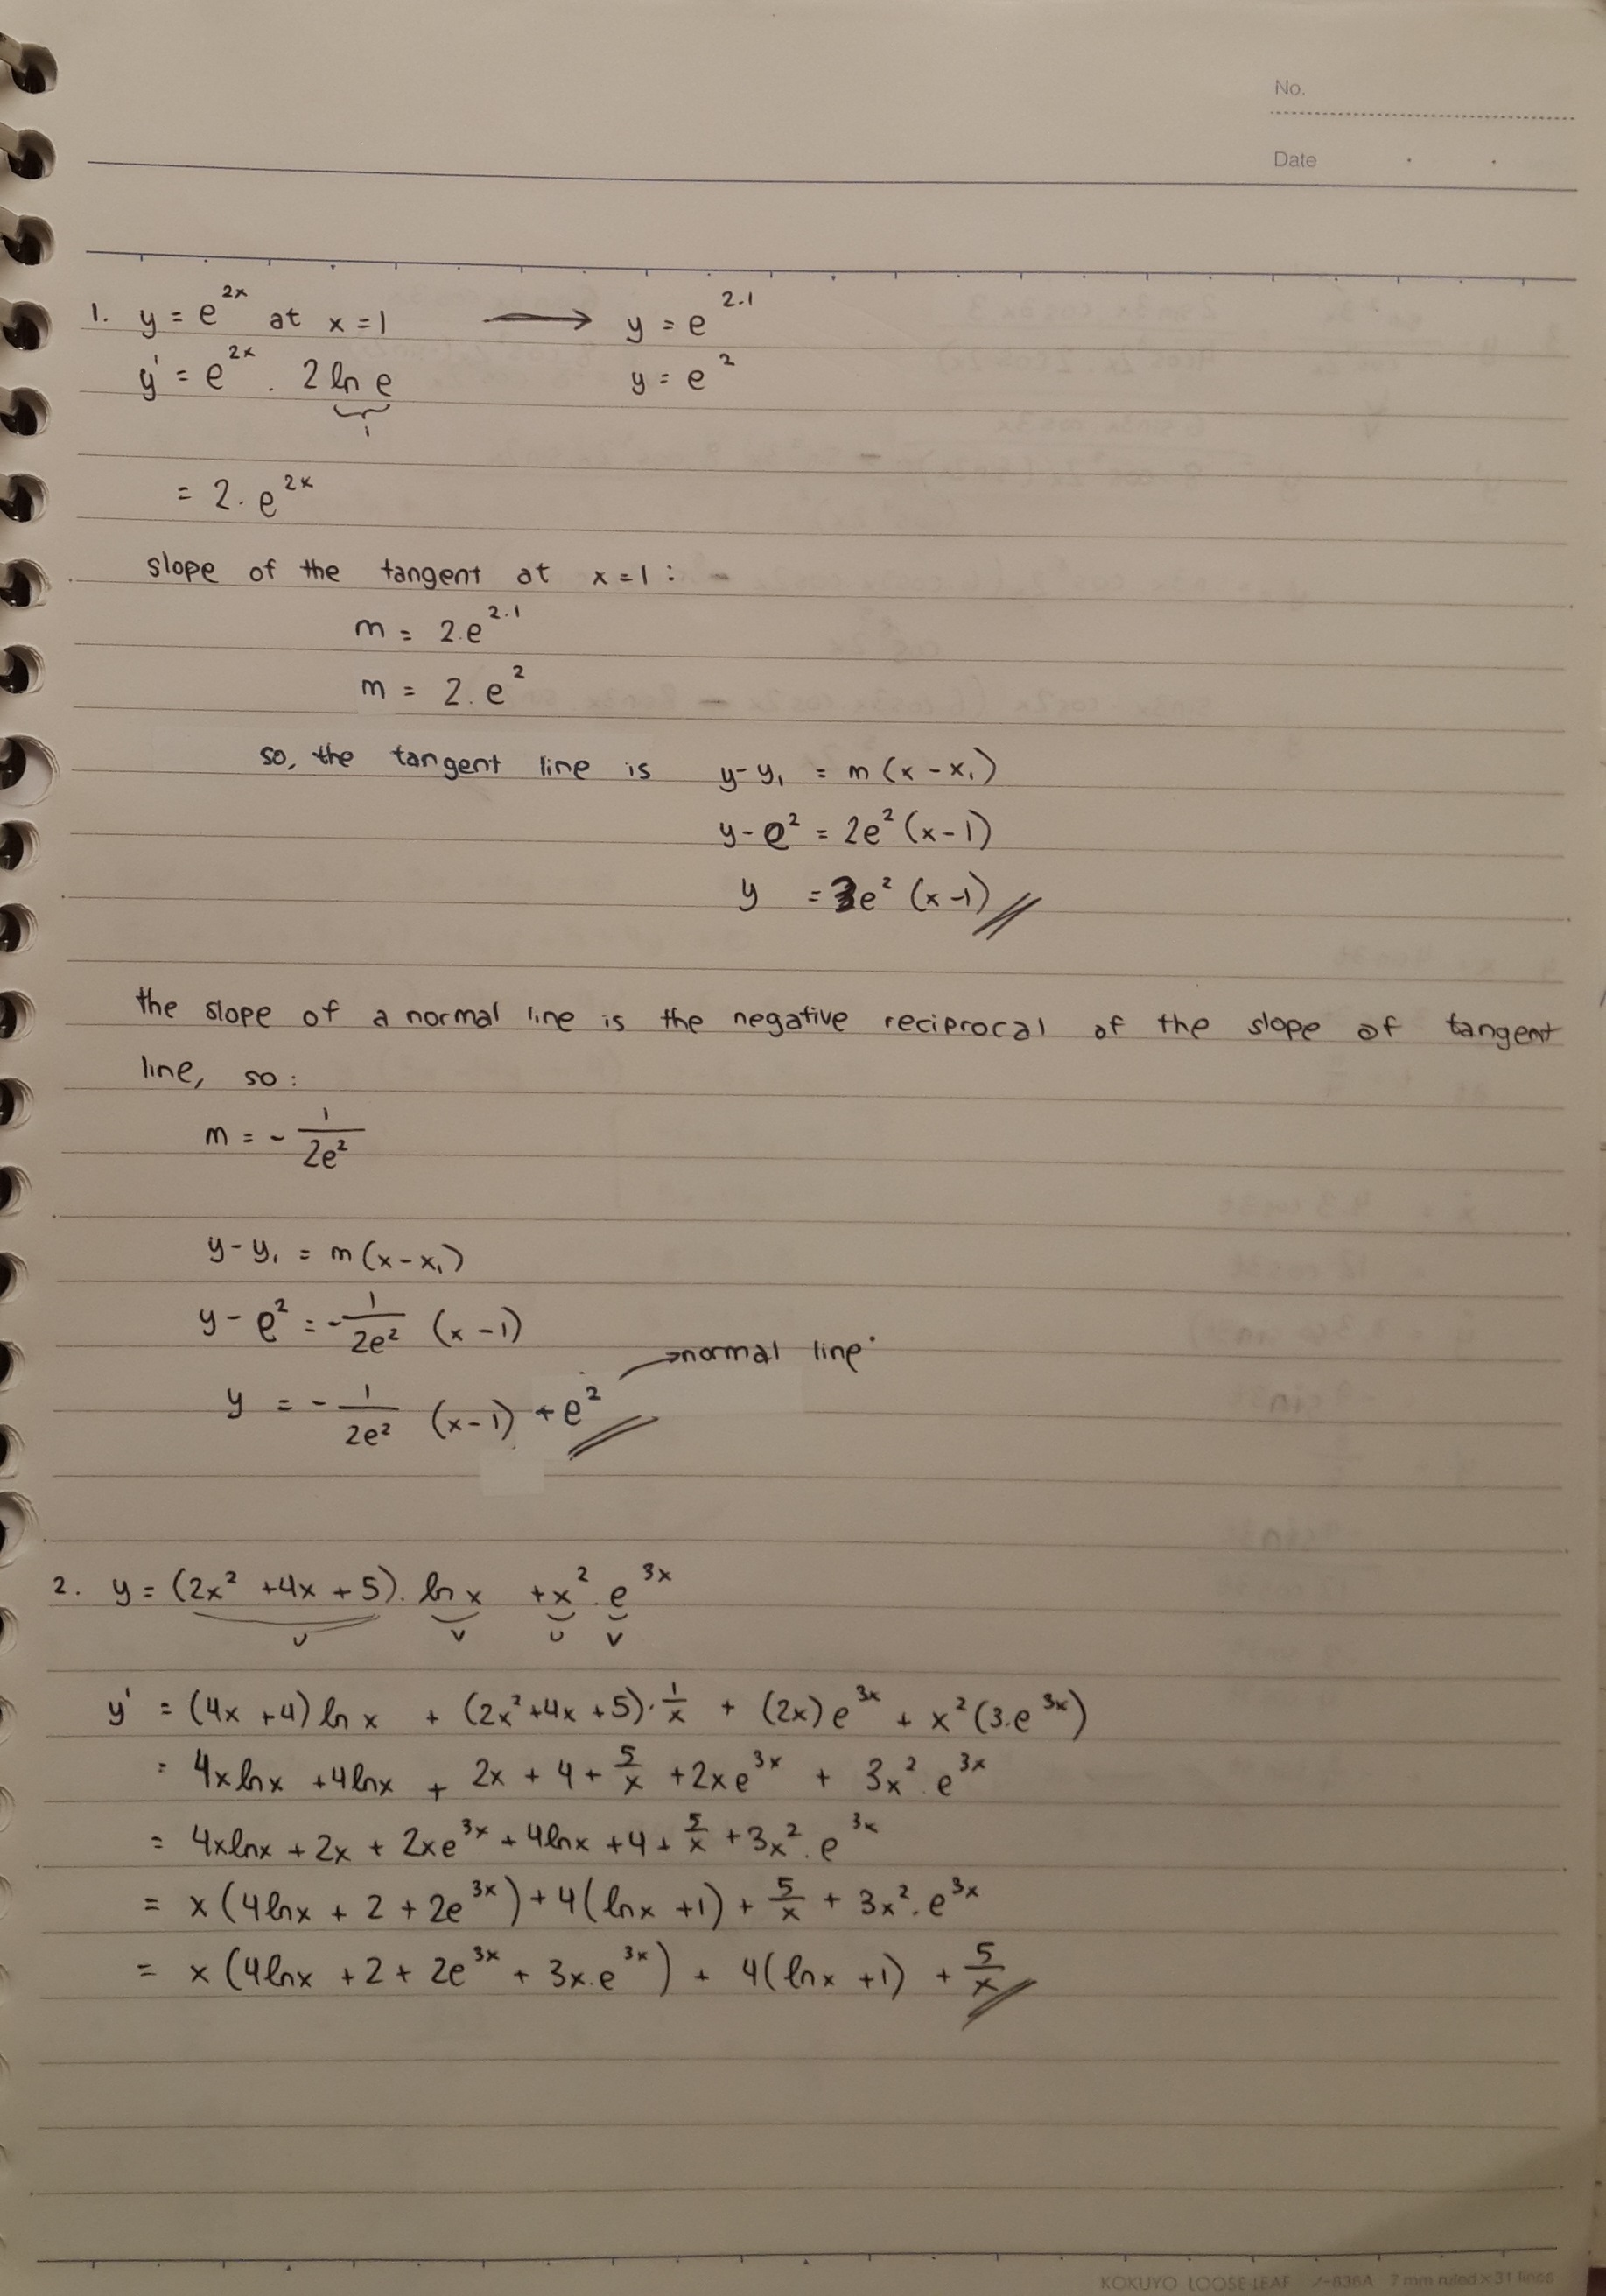 No.
Date
1. y = e^{2x} at x = 1 ⟶ y = e^{2.1}
y' = e^{2x} . 2 ln e y = e^2
1
= 2. e^{2x}
slope of the tangent at x = 1 :
m = 2.e^{2.1}
m = 2. e^2
so, the tangent line is y - y₁ = m (x - x₁)
y - e^2 = 2e^2 (x - 1)
y = 3e^2 (x - 1)
the slope of a normal line is the negative reciprocal of the slope of tangent
line, so :
m = - 1/2e^2
y - y₁ = m (x - x₁)
y - e^2 = - 1/2e^2 (x - 1)
→ normal line
y = - 1/2e^2 (x - 1) + e^2
2. y = (2x^2 + 4x + 5) . ln x + x^2 . e^{3x}
U V U V
y' = (4x + 4) ln x + (2x^2 + 4x + 5) . 1/x + (2x) e^{3x} + x^2 (3.e^{3x})
= 4x ln x + 4 ln x + 2x + 4 + 5/x + 2x e^{3x} + 3x^2 . e^{3x}
= 4x ln x + 2x + 2x e^{3x} + 4 ln x + 4 + 5/x + 3x^2 . e^{3x}
= x (4 ln x + 2 + 2e^{3x}) + 4 (ln x + 1) + 5/x + 3x^2 . e^{3x}
= x (4 ln x + 2 + 2e^{3x} + 3x . e^{3x}) + 4 (ln x + 1) + 5/x
KOKUYO LOOSE-LEAF ノ-836A 7 mm ruled × 31 lines